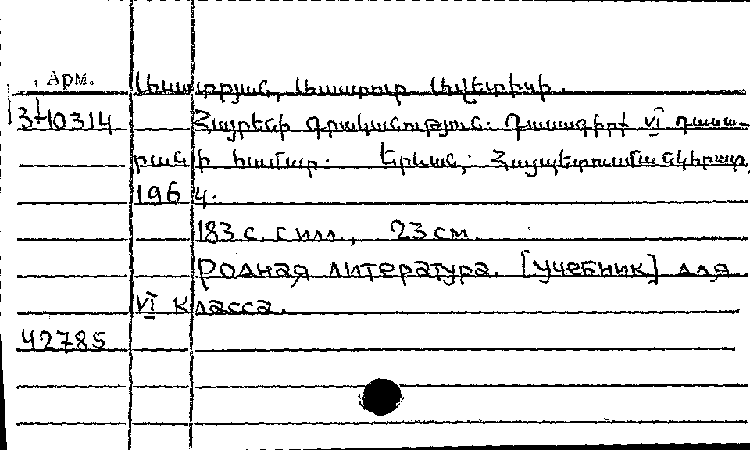 Арм.
Ասատրյան, Ասատուր Ավետիսի.
340314 Հայրենի գրականություն. Դասագիրք VI դասա-
րանի համար. Երևան, Հայպետուսմանկհրատ,
1964.
183 с. с илл., 23 см.
Родная литература. [Учебник] для
VI класса.
42785